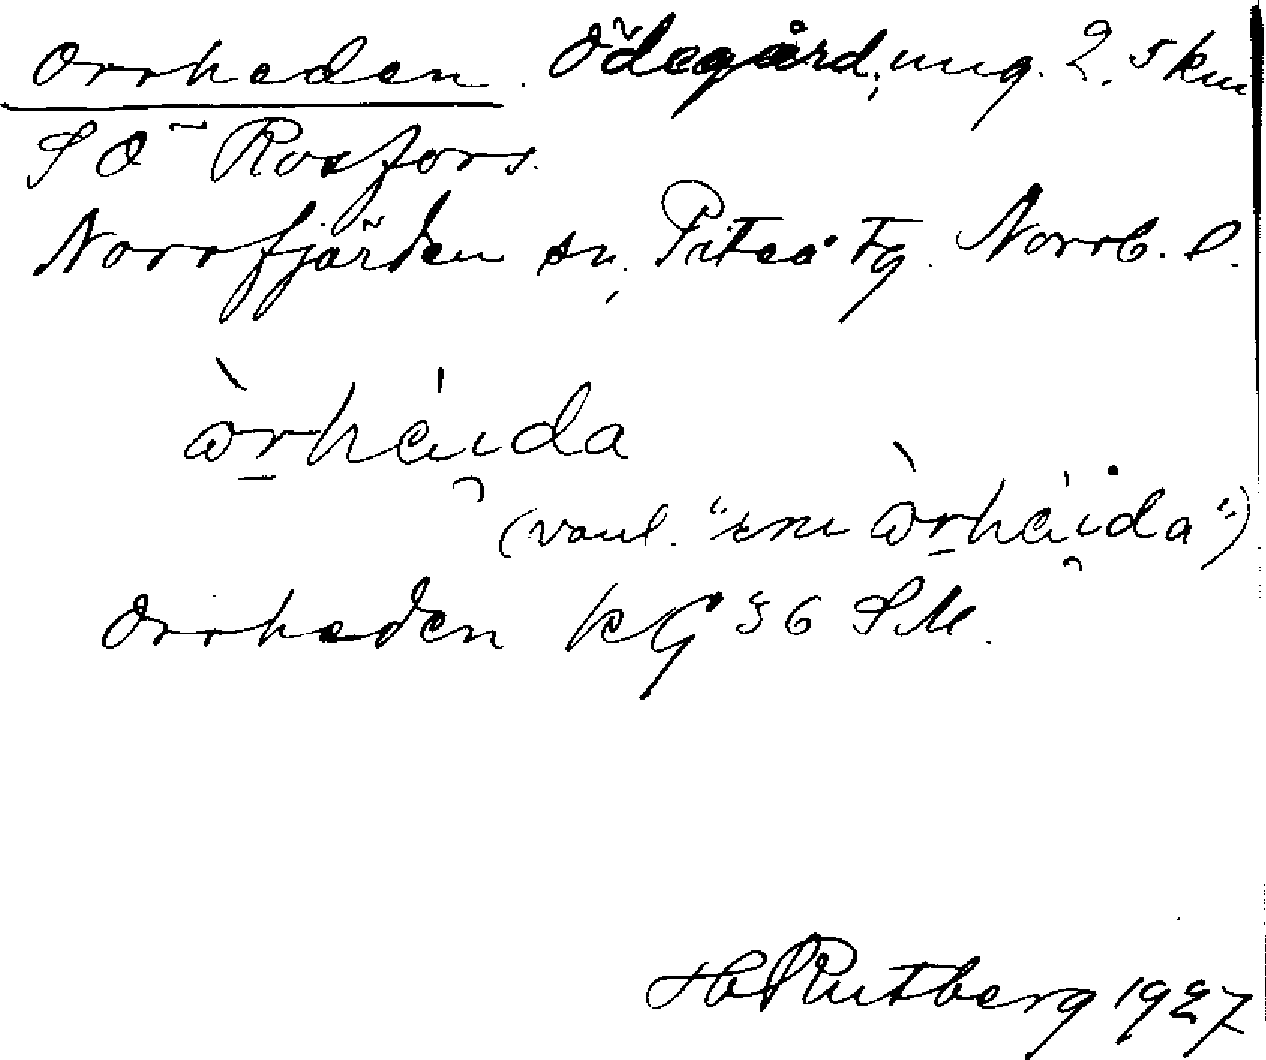 Orrheden. Ödegård, ung. 2,5 km
SÖ Rosfors.
Norrfjärden sn, Piteå tg. Norrb. l.
òrhέi̯da
(vanl. "  òrhέi̯da")
Orrheden KG 36 SM.
H Rutberg 1927